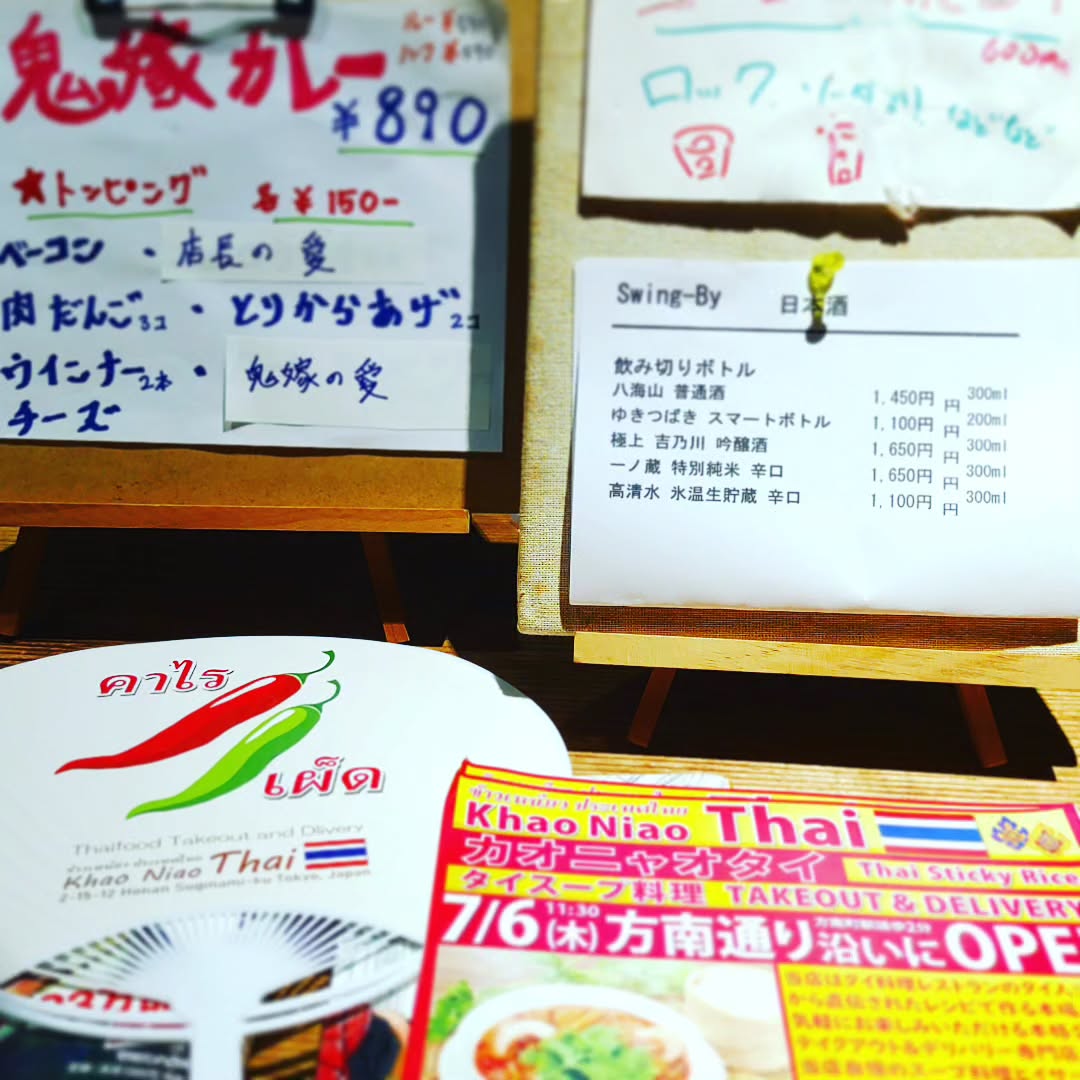 鬼嫁カレー
¥890
★トッピング 各¥150-
ベーコン・店長の愛
肉だんご3コ・とりからあげ2コ
ウインナー2本・鬼嫁の愛
チーズ
600
ロック・ソーダ割 などなど
Swing-By 日本酒
飲み切りボトル
八海山 普通酒 1,450円 円 300ml
ゆきつばき スマートボトル 1,100円 円 200ml
極上 吉乃川 吟醸酒 1,650円 円 300ml
一ノ蔵 特別純米 辛口 1,650円 円 300ml
高清水 氷温生貯蔵 辛口 1,100円 円 300ml
คาไร
เผ็ด
Thaifood Takeout and Dlivery
ข้าวเหนียว ประเทศไทย
Khao Niao Thai
2-15-12 Honan Suginami-ku Tokyo, Japan
ข้าวเหนียว ประเทศไทย
Khao Niao Thai
カオニャオタイ Thai Sticky Rice
タイスープ料理 TAKEOUT & DELIVERY
7/6(木) 11:30 方南通り沿いにOPE
方南町駅徒歩2分
当店はタイ料理レストランのタイ人
から直伝されたレシピで作る本格
気軽にお楽しみいただける本格
テイクアウト&デリバリー専門店
当店自慢のスープ料理と